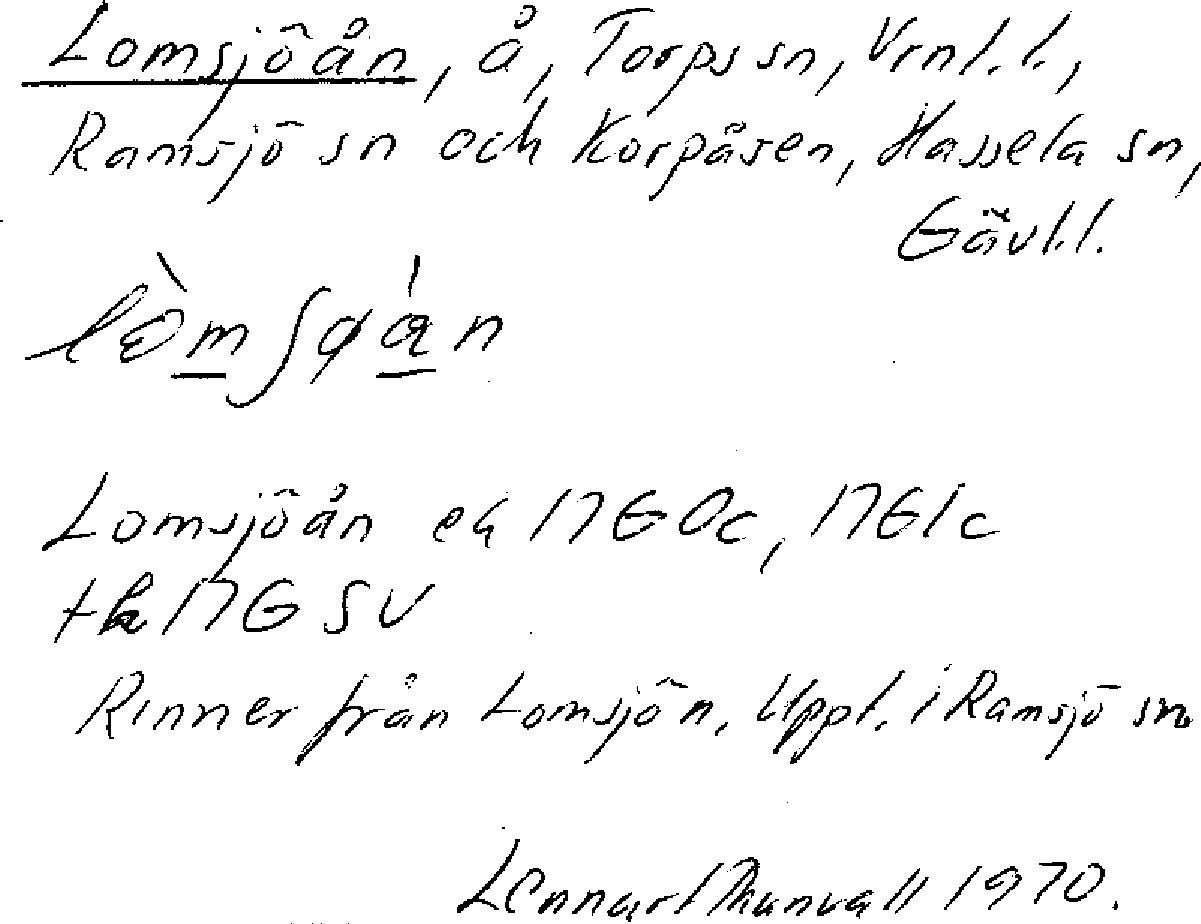 Lomsjöån, å, Torps sn, Vrnl.l.,
Ramsjö sn och Korpåsen, Hassela sn,
Gävl.l.
Lomsjöån ek 17G0c, 17G1c
tk 17G SV
Rinner från Lomsjön. Uppl. i Ramsjö sn
Lennart Thunvall 1970.